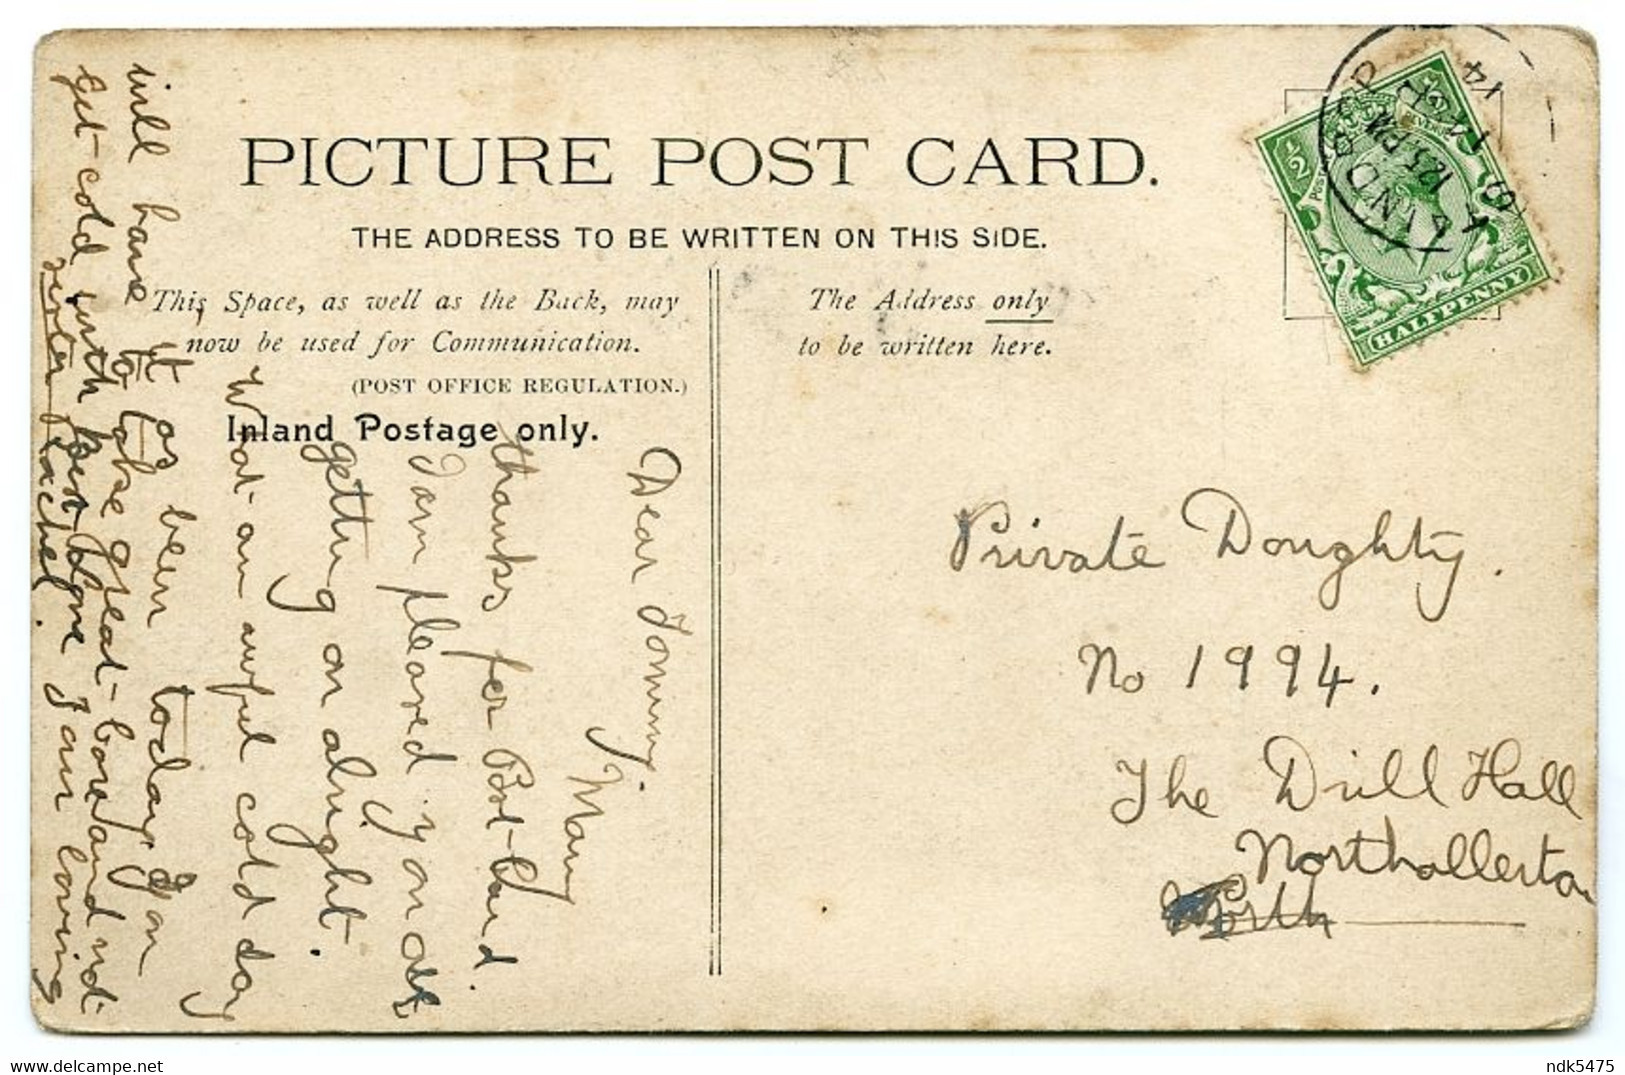 PICTURE POST CARD.
THE ADDRESS TO BE WRITTEN ON THIS SIDE.
This Space, as well as the Back, may
now be used for Communication.
(POST OFFICE REGULATION.)
Inland Postage only.
The Address only
to be written here.
Dear Tommy. Many
thanks for Post-Card.
I am pleased you are
getting on alright.
What an awful cold day
it as been today you
will have to take great care and not
get cold with best love I am loving
sister Rachel.
Private Doughty.
No 1994.
The Drill Hall
Northallerton
North
HALFPENNY
1/2
1/2
12.15 PM
14
ndk5475